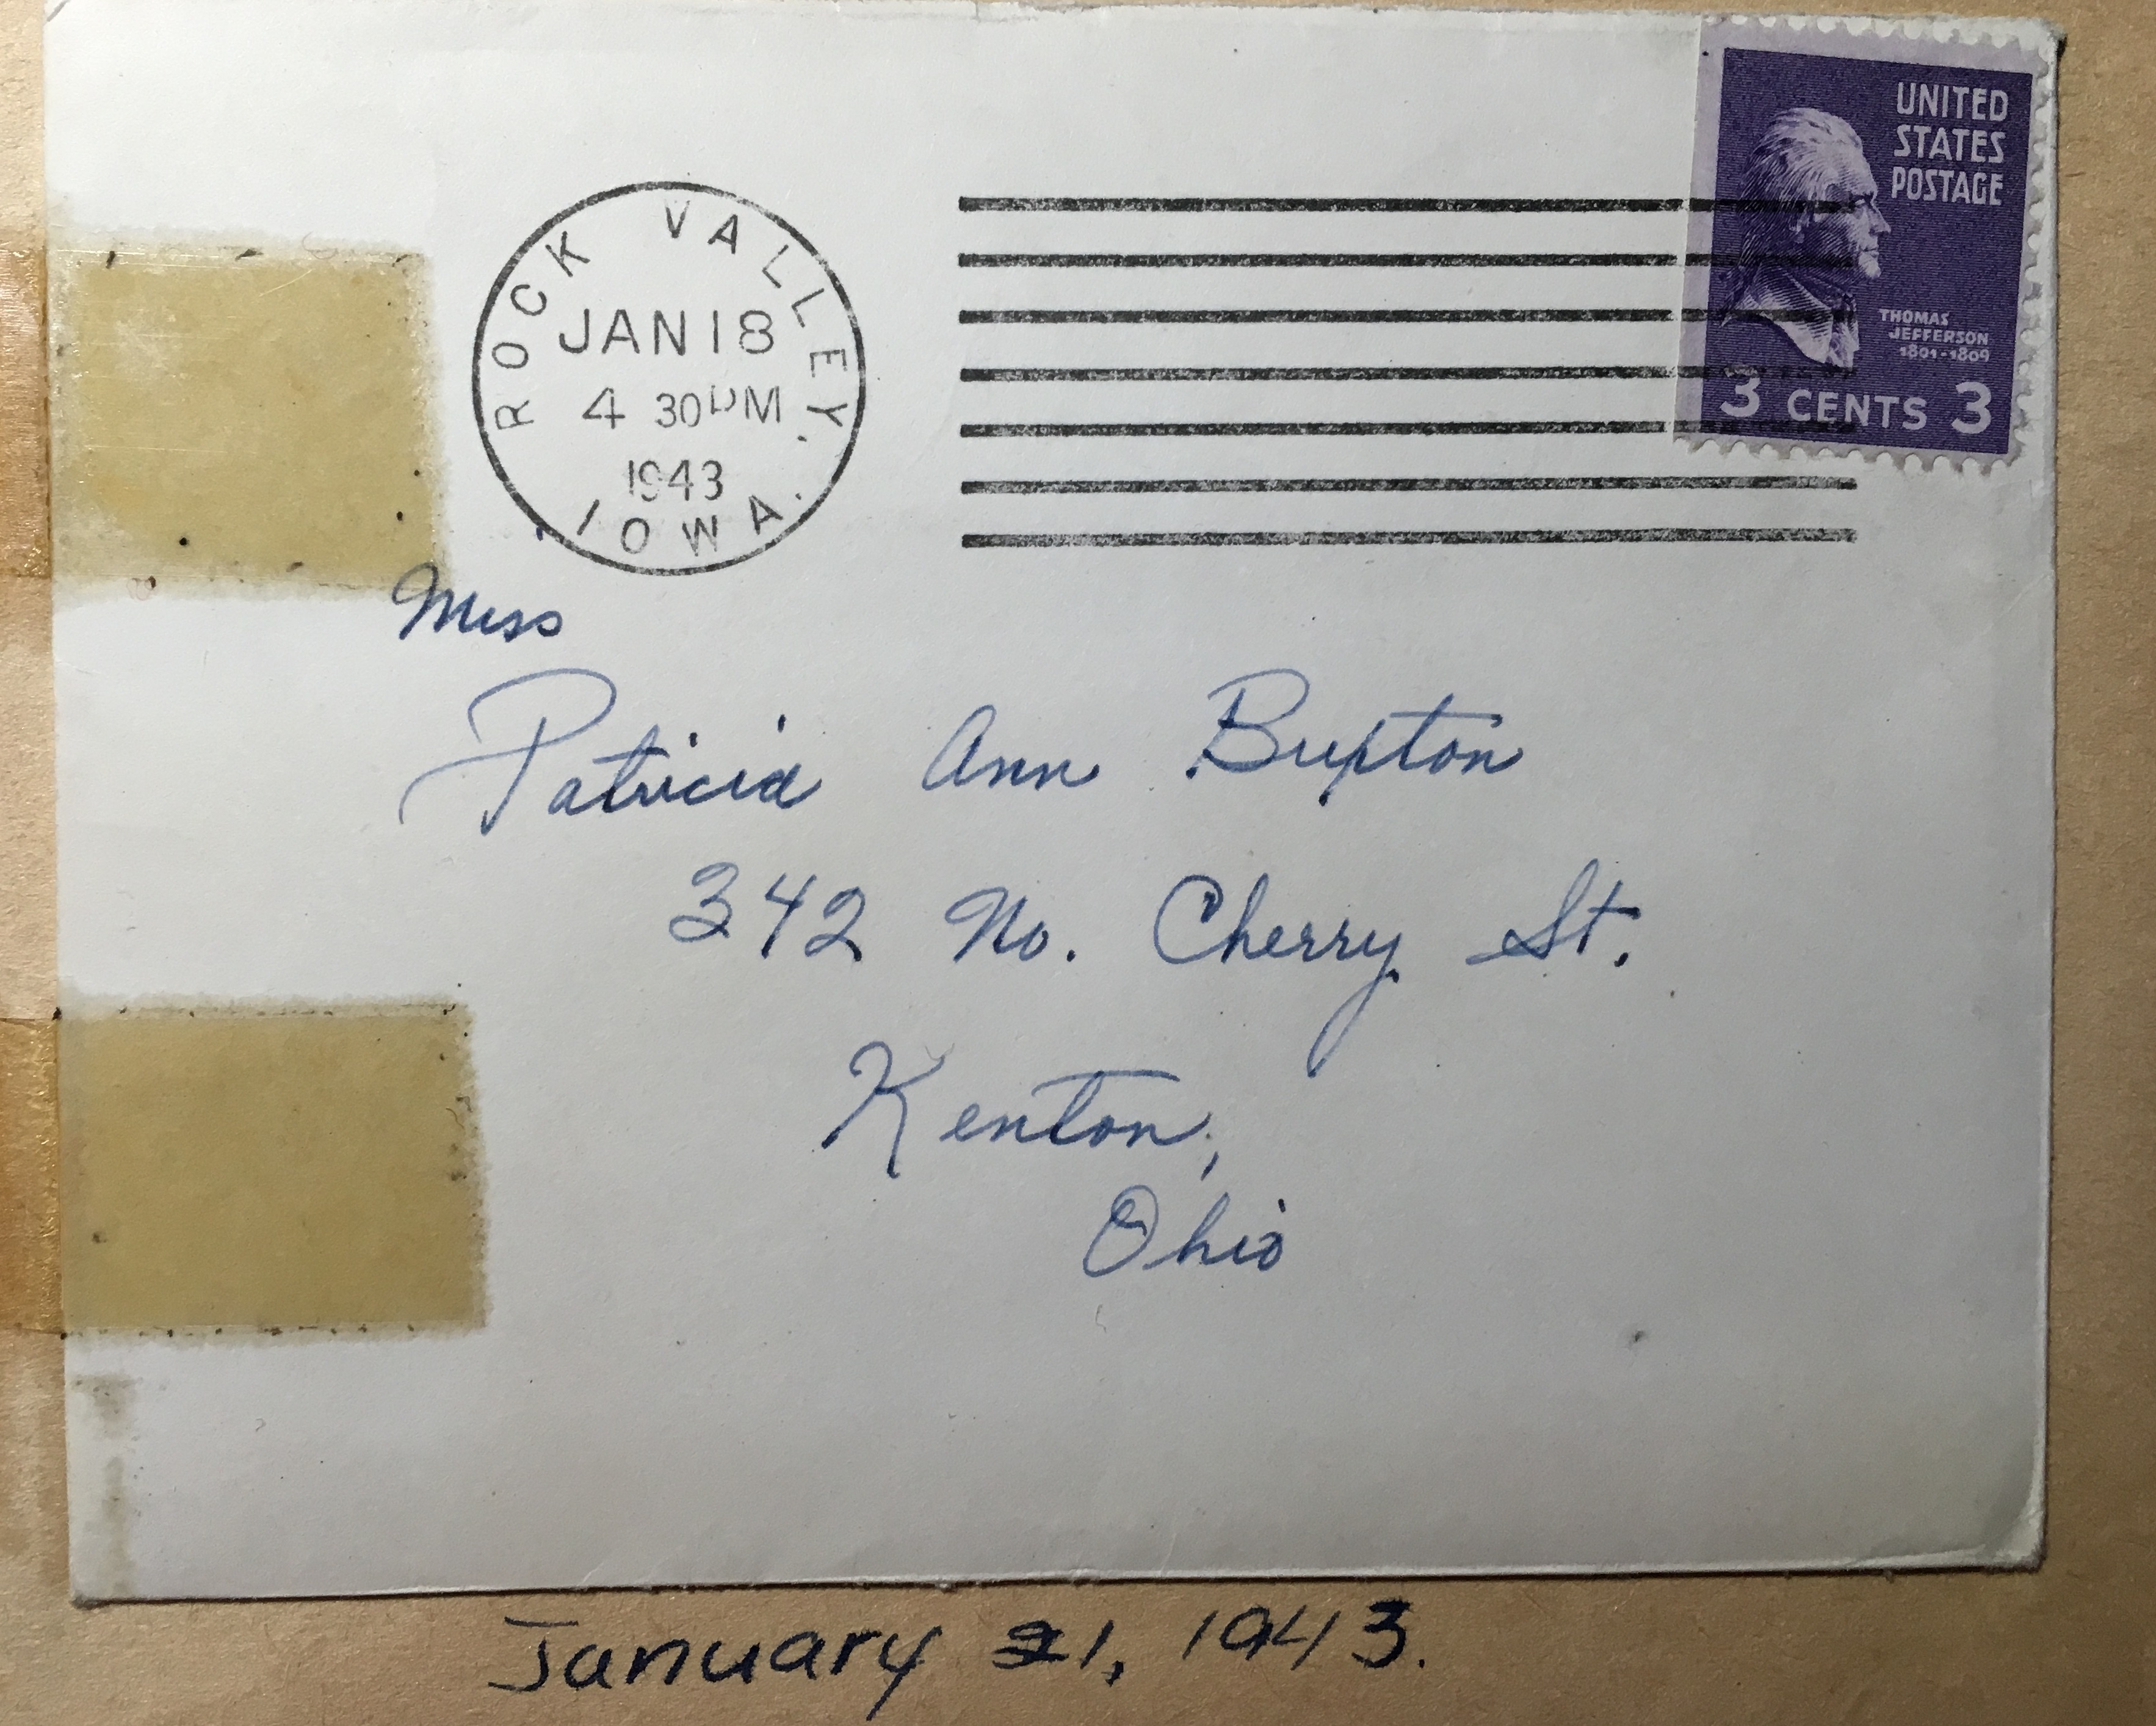 ROCK VALLEY.
JAN 18
4 30 PM
1943
IOWA.
UNITED
STATES
POSTAGE
THOMAS
JEFFERSON
1801-1809
3 CENTS 3
Miss
Patricia Ann Buxton
342 No. Cherry St.
Kenton,
Ohio
January 21, 1943.